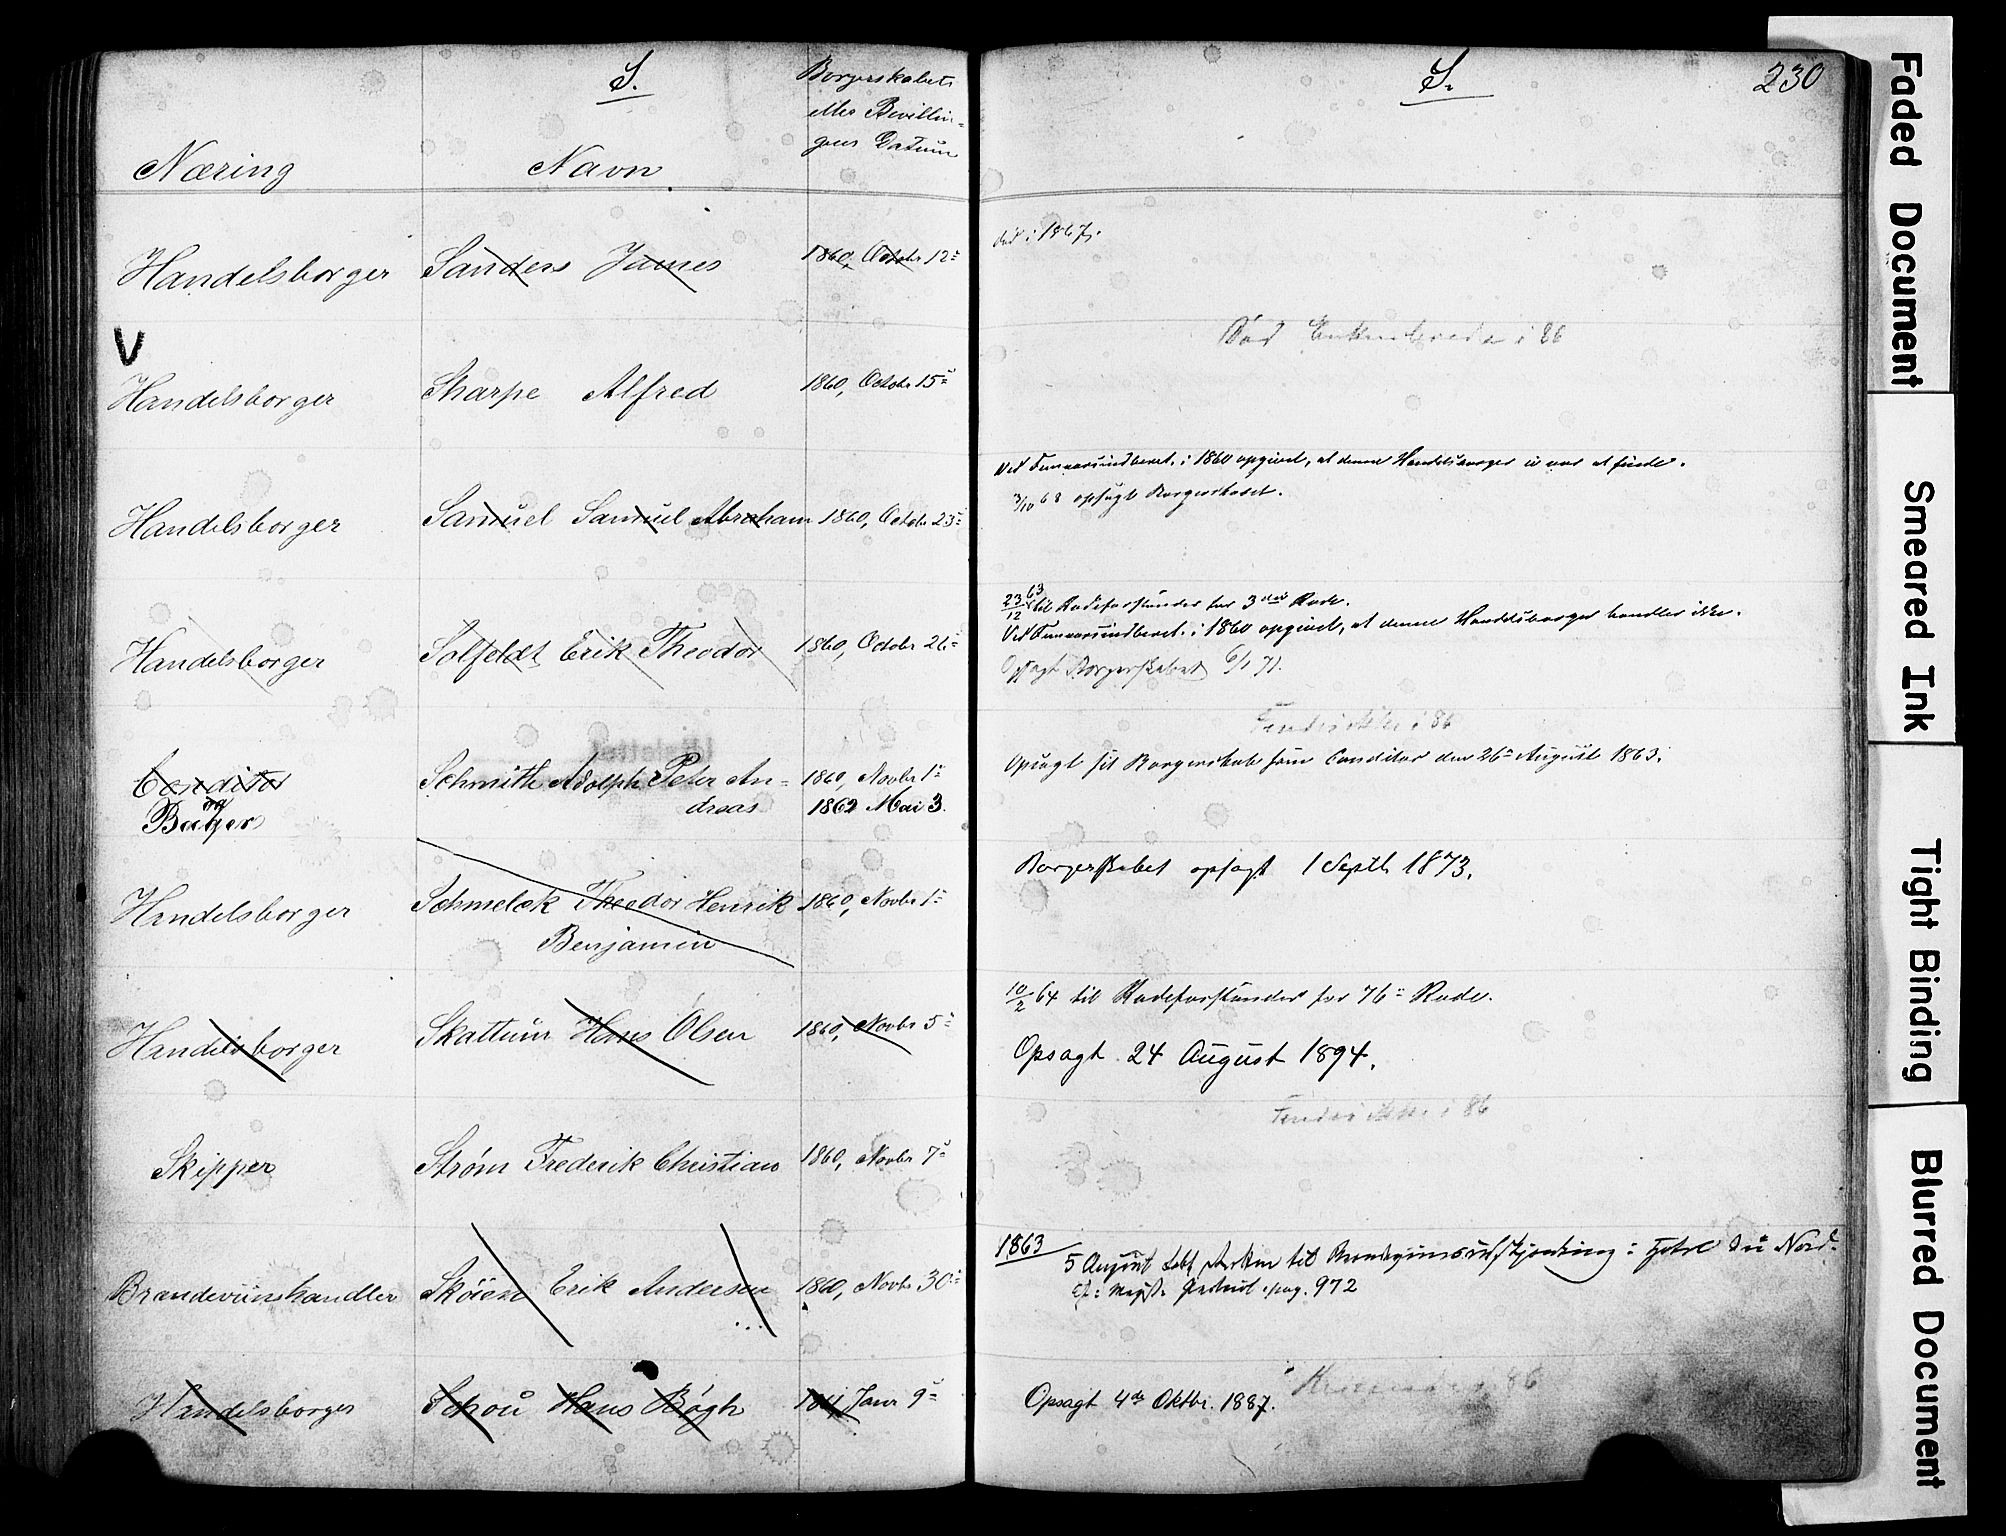 S.
Borgerskabets
eller Bevillin-
gens Datum
Næring
Navn
S.
230
Handelsborger Sanders James 1860, Octobr 12te
død i 1867.
V
Død i 86
Handelsborger Sharpe Alfred 1860, Octobr 15te
Handelsborger Samuel Samuel Abraham 1860, Octobr 23de
Ved i 1860 opgivet, at denne Handelsborger ei var at finde.
3/10 68 opsagt Borgerskabet.
Handelsborger Solfeldt Erik Theodor 1860, Octobr 26te
23/12 63 til Rodeforstander for 3die Rode.
Ved i 1860 opgivet, at denne Handelsborger handler ikke.
Opsagt Borgerskabet 6/1 71.
Findes ikke i 86
Conditor
og
Bager
Schmith Adolph Peter An-
dreas
1860, Novbr 1te
1862 Mai 3.
Opsagt sit Borgerskab som Conditor den 26de August 1863.
Handelsborger Schmelck Theodor Henrik
Benjamin
1860, Novbr 1te
Borgerskabet opsagt 1 Septb. 1873.
Handelsborger Skattum Hans Olsen 1860, Novbr 5te
10/2 64 til Rodeforstander for 76te Rode.
Opsagt 24 August 1894.
Findes ikke i 86
Skipper Strøm Frederik Christian 1860, Novbr 7de
Brændeviinshandler Skøien Erik Andersen 1860, Novbr 30te
1863
5 August til i Hotel du Nord.
pag. 972
Handelsborger Schou Hans Bøgh 1861 Janr 9de
Opsagt 4de Oktbr. 1887.
86
Faded Document
Smeared Ink
Tight Binding
Blurred Document